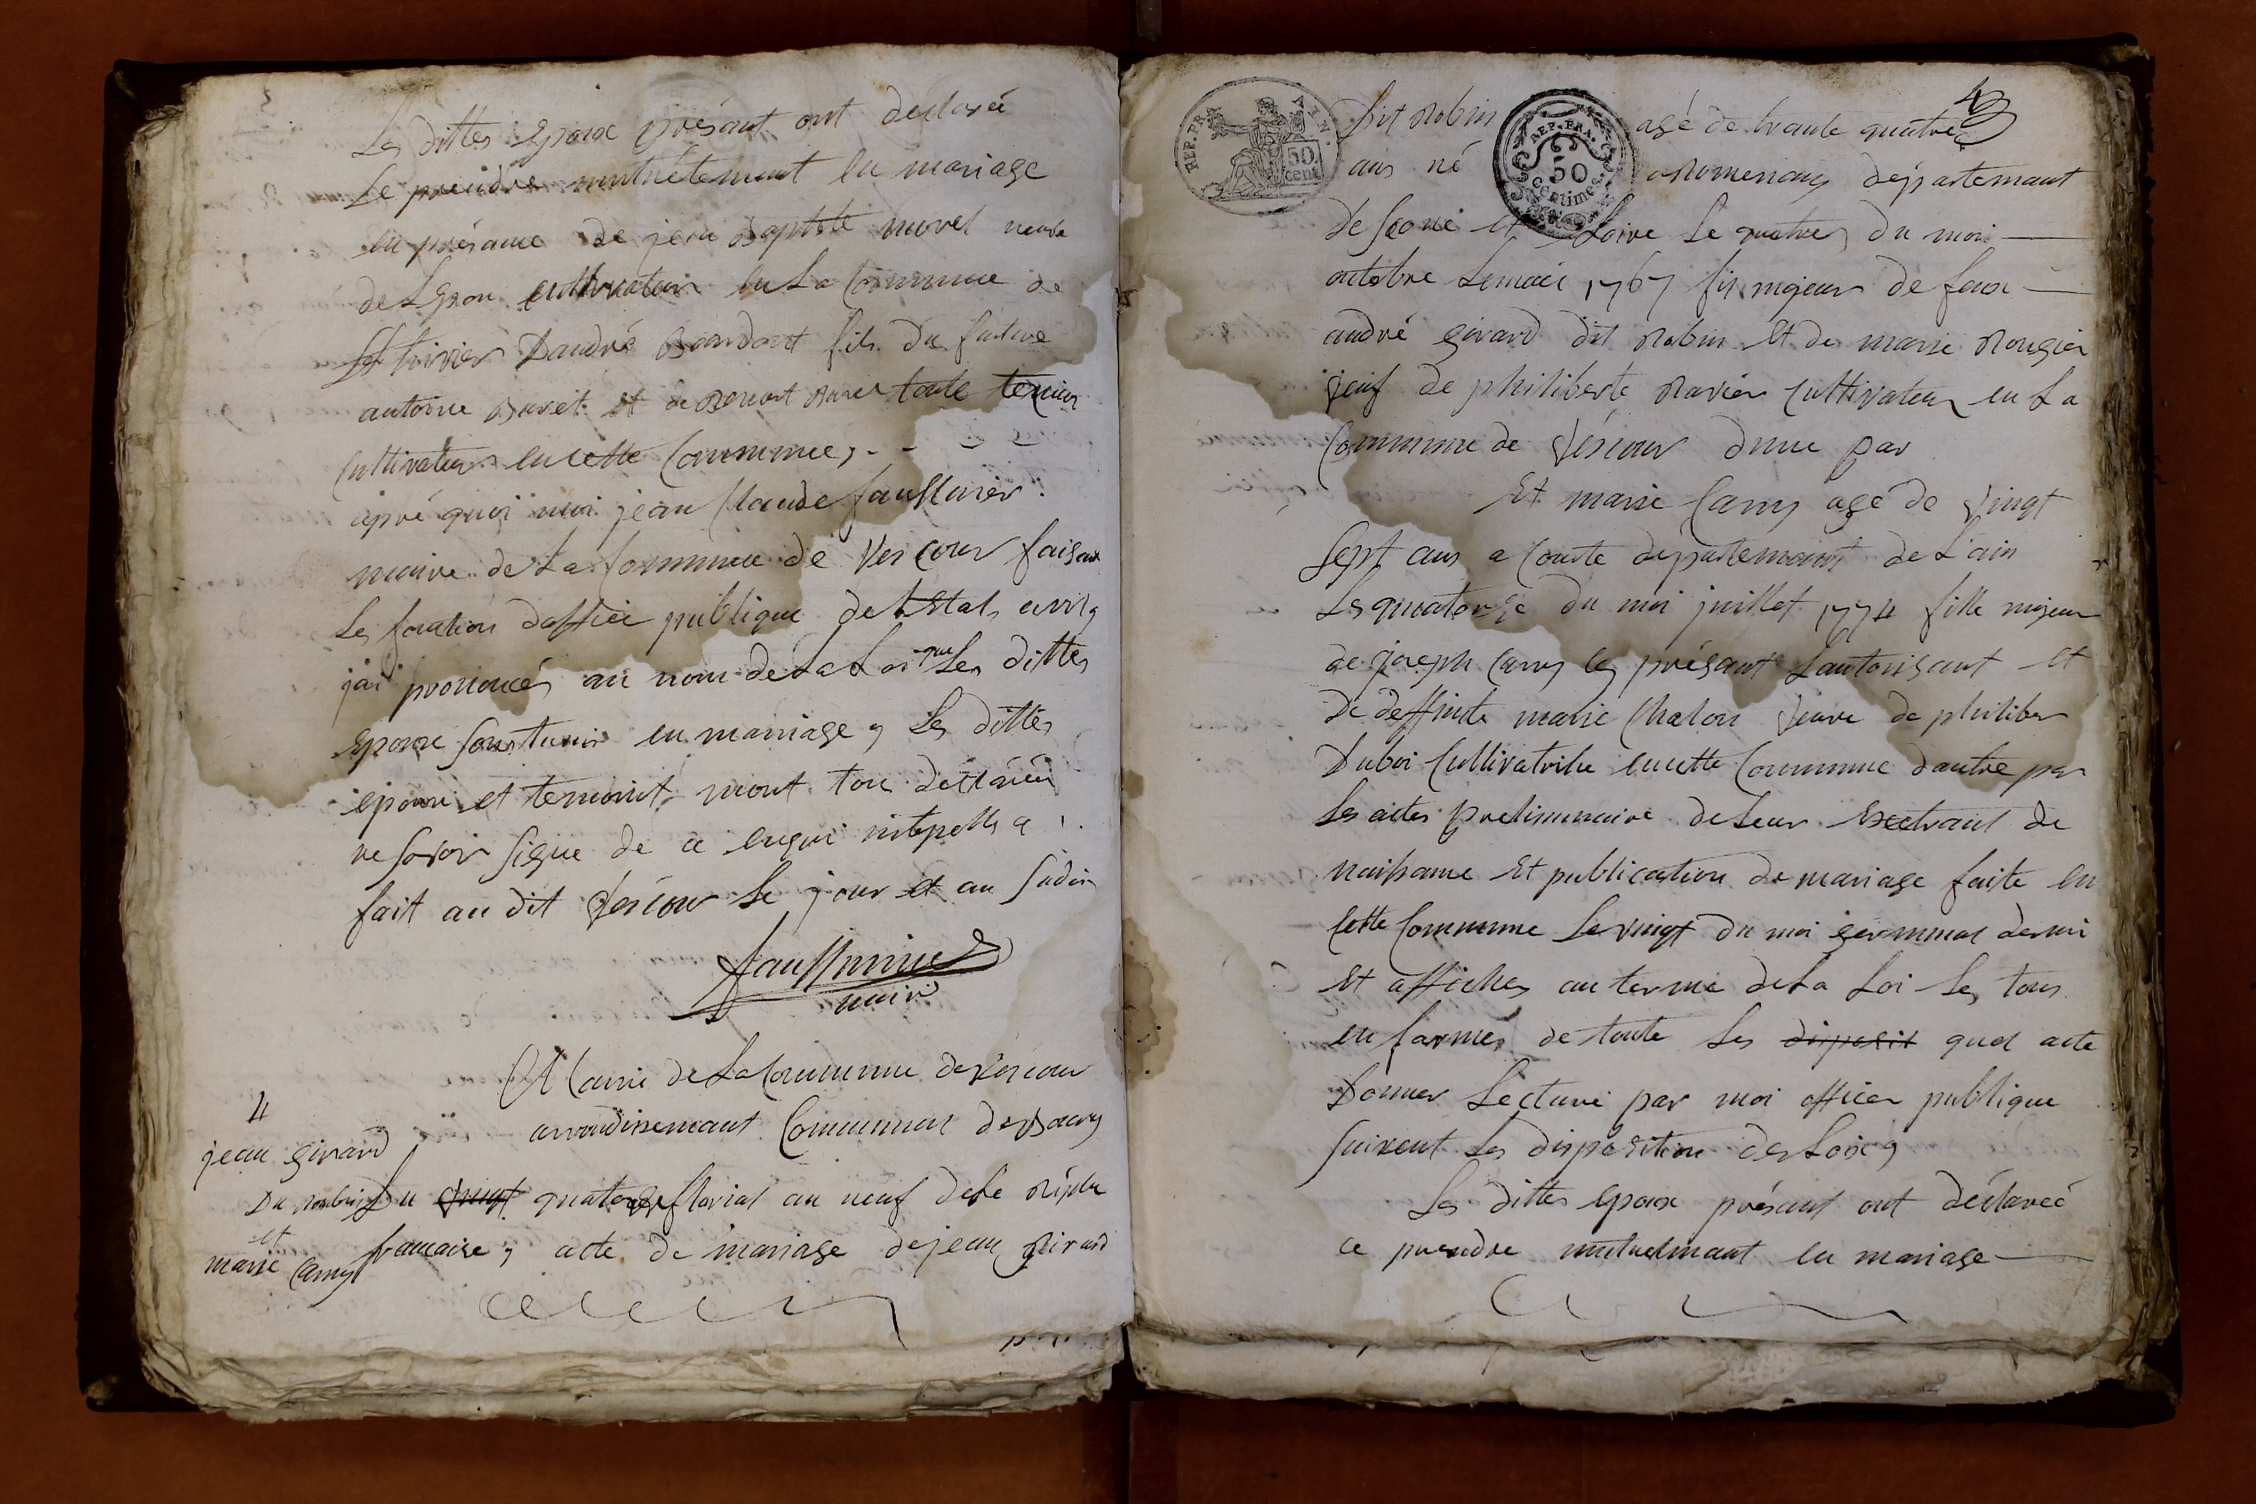 Les dittes Epoux présant ont declaré
Se preindre muthètemant en mariage
en présance de jean Baptiste morel neveu
de Lepou cultivateur en La Commune de
d'andré fils du
antoine Buret et de Benoit toute temoin
Cultivateur en cette Commune,
apré quoi moi jean Claude faussurier
maire de La Commune de Vescour faisant
Les fonction d'officié publique de Letat civil,
j'ai prononcés au nom de La Loi que Les dittes
Epoux sont unis en mariage, Les dittes
epoux et temoint mont tou declaréé
ne savoir signe de ce enqui
fait au dit Vescour Le jour et an sudit
maire
A La mairie de La Commune de Vescour
arrondissemant Communal de Bourg
4
jean girard
Du robin
et
marie Camy
Du vingt quatorze floréal an neuf de La Répu
francaise, acte de mariage de jean girard
REP. FRA.
50 cent.
REP. FRA.
50 centimes
dit Robin agé de trante quatre
ans né a Romenay département
de Saone et Loire Le quatre du moi
octobre Lannéé 1767 fis majeur de feux
andré girard dit Robin et de marie Rougier
Veuf de philiberte Ravier Cultivateur en La
Commune de Vescour dune par
Et marie Camy agé de Vingt
Sept ans a Courte departemant de L'ain
Le quatorze du moi juillet 1774 fille majeur
de joseph Camy présant Lautorisant et
De deffinte marie Chalon Veuve de philiber
Duboi Cultivatrike en cette Commune dautre par
Les actes preliminaire de Leur Exetrait de
naissance Et publication de mariage faite en
Cette Commune Le vingt du moi germinal dernié
et affiches au terme de La Loi Le tous
en formes de toute Les disposit quel acte
Donner Lecture par moi officer publique
suivent Les disposition des Loix,
Les dittes Epoux présant ont déclaréé
ce prendre mutuelmant en mariage